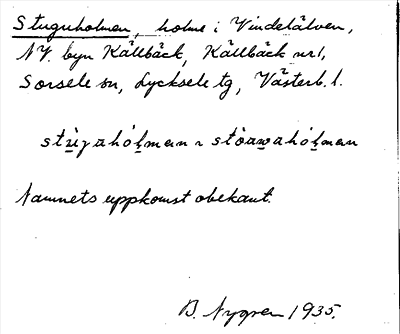 Stuguholmen, holme i Vindelälven,
NV. byn Källbäck, Källbäck nr 1,
Sorsele sn, Lycksele tg, Västerb. l.
stùɣahól̥man ~ stòawahól̥man
Namnets uppkomst obekant.
B. Nygren 1935.